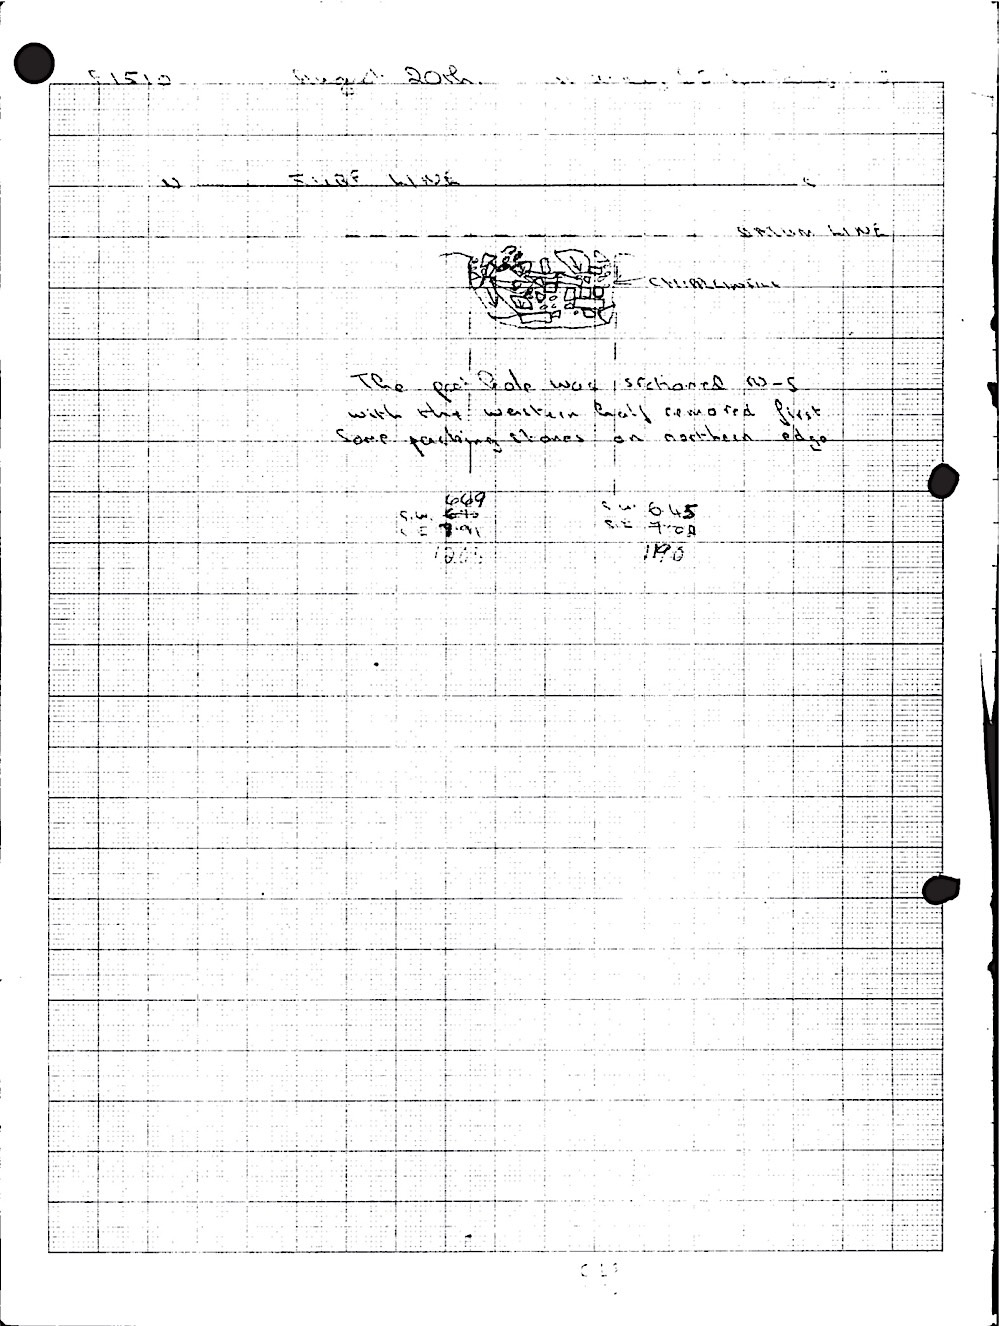 F1510 August 20th.
N TURF LINE S
DATUM LINE
The post hole was sectioned N-S
with the western half removed first
Some packing stones on northern edge
669
S.W. S.W. 6.45
S.E 7.91 S.E. 7.08
1190